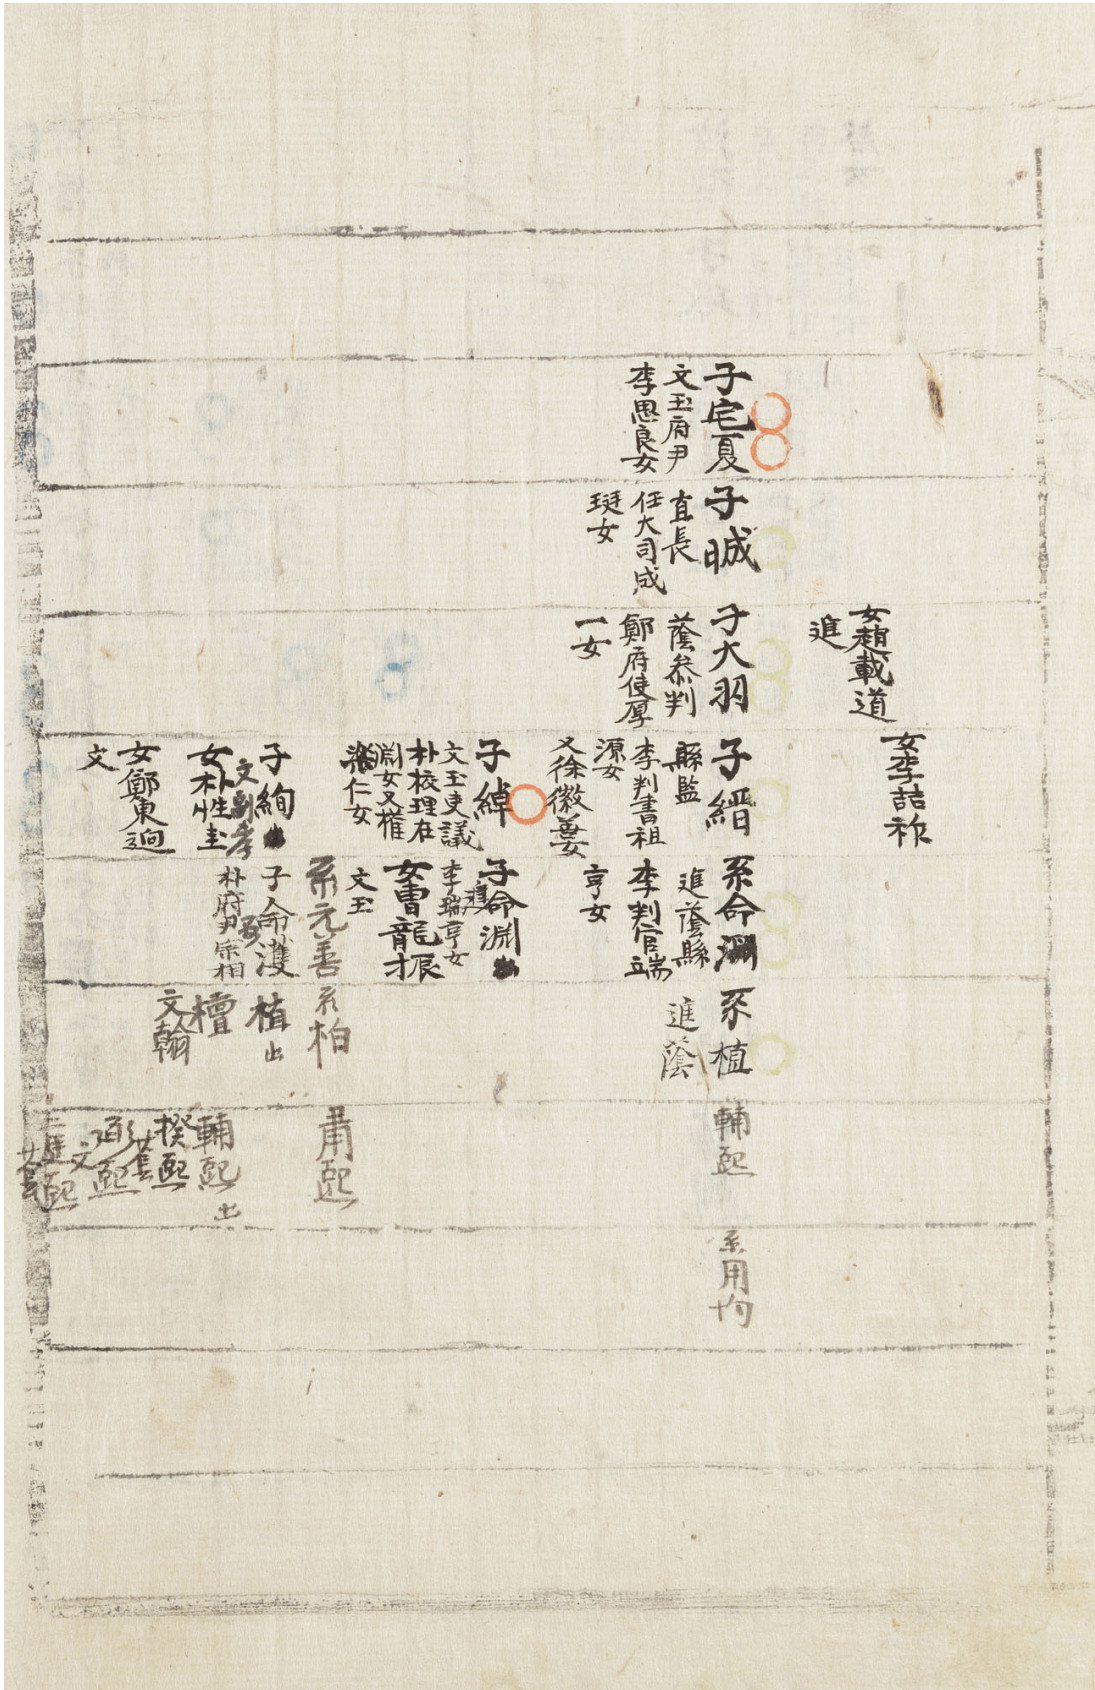 子宅夏
文玉府尹
李思良女
子晠
直長
任大司成
珽女
女趙載道
進
子大羽
蔭叅判
鄭府使厚
一女
女李喆祚
子縉
縣監
李判書祖
源女
又徐徽
子綽
文玉吏議
朴校理在
淵女又權
仁女
子絢
文副
女朴性圭
女鄭東逈
文
系命淵
進蔭縣
李判官端
亨女
子命淵出
進
李端亨女
女曺龍振
文玉
系元善
子命濩
朴府尹宗相
系植
進蔭
系柏
植出
檀
文翰
輔熙
肅熙
輔熙
出
揆熙
熙
文
庭熙
系用均